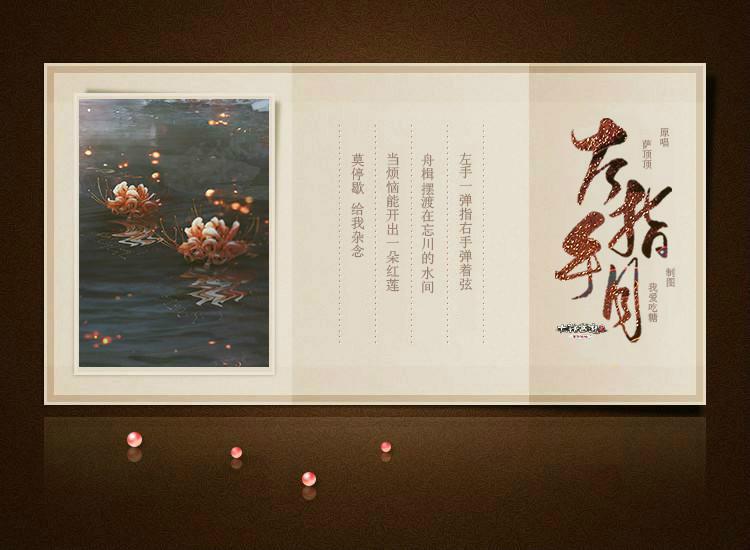 左手指月
原唱
萨顶顶
制图
我爱吃糖
左手一弹指右手弹着弦
舟楫摆渡在忘川的水间
当烦恼能开出一朵红莲
莫停歇 给我杂念